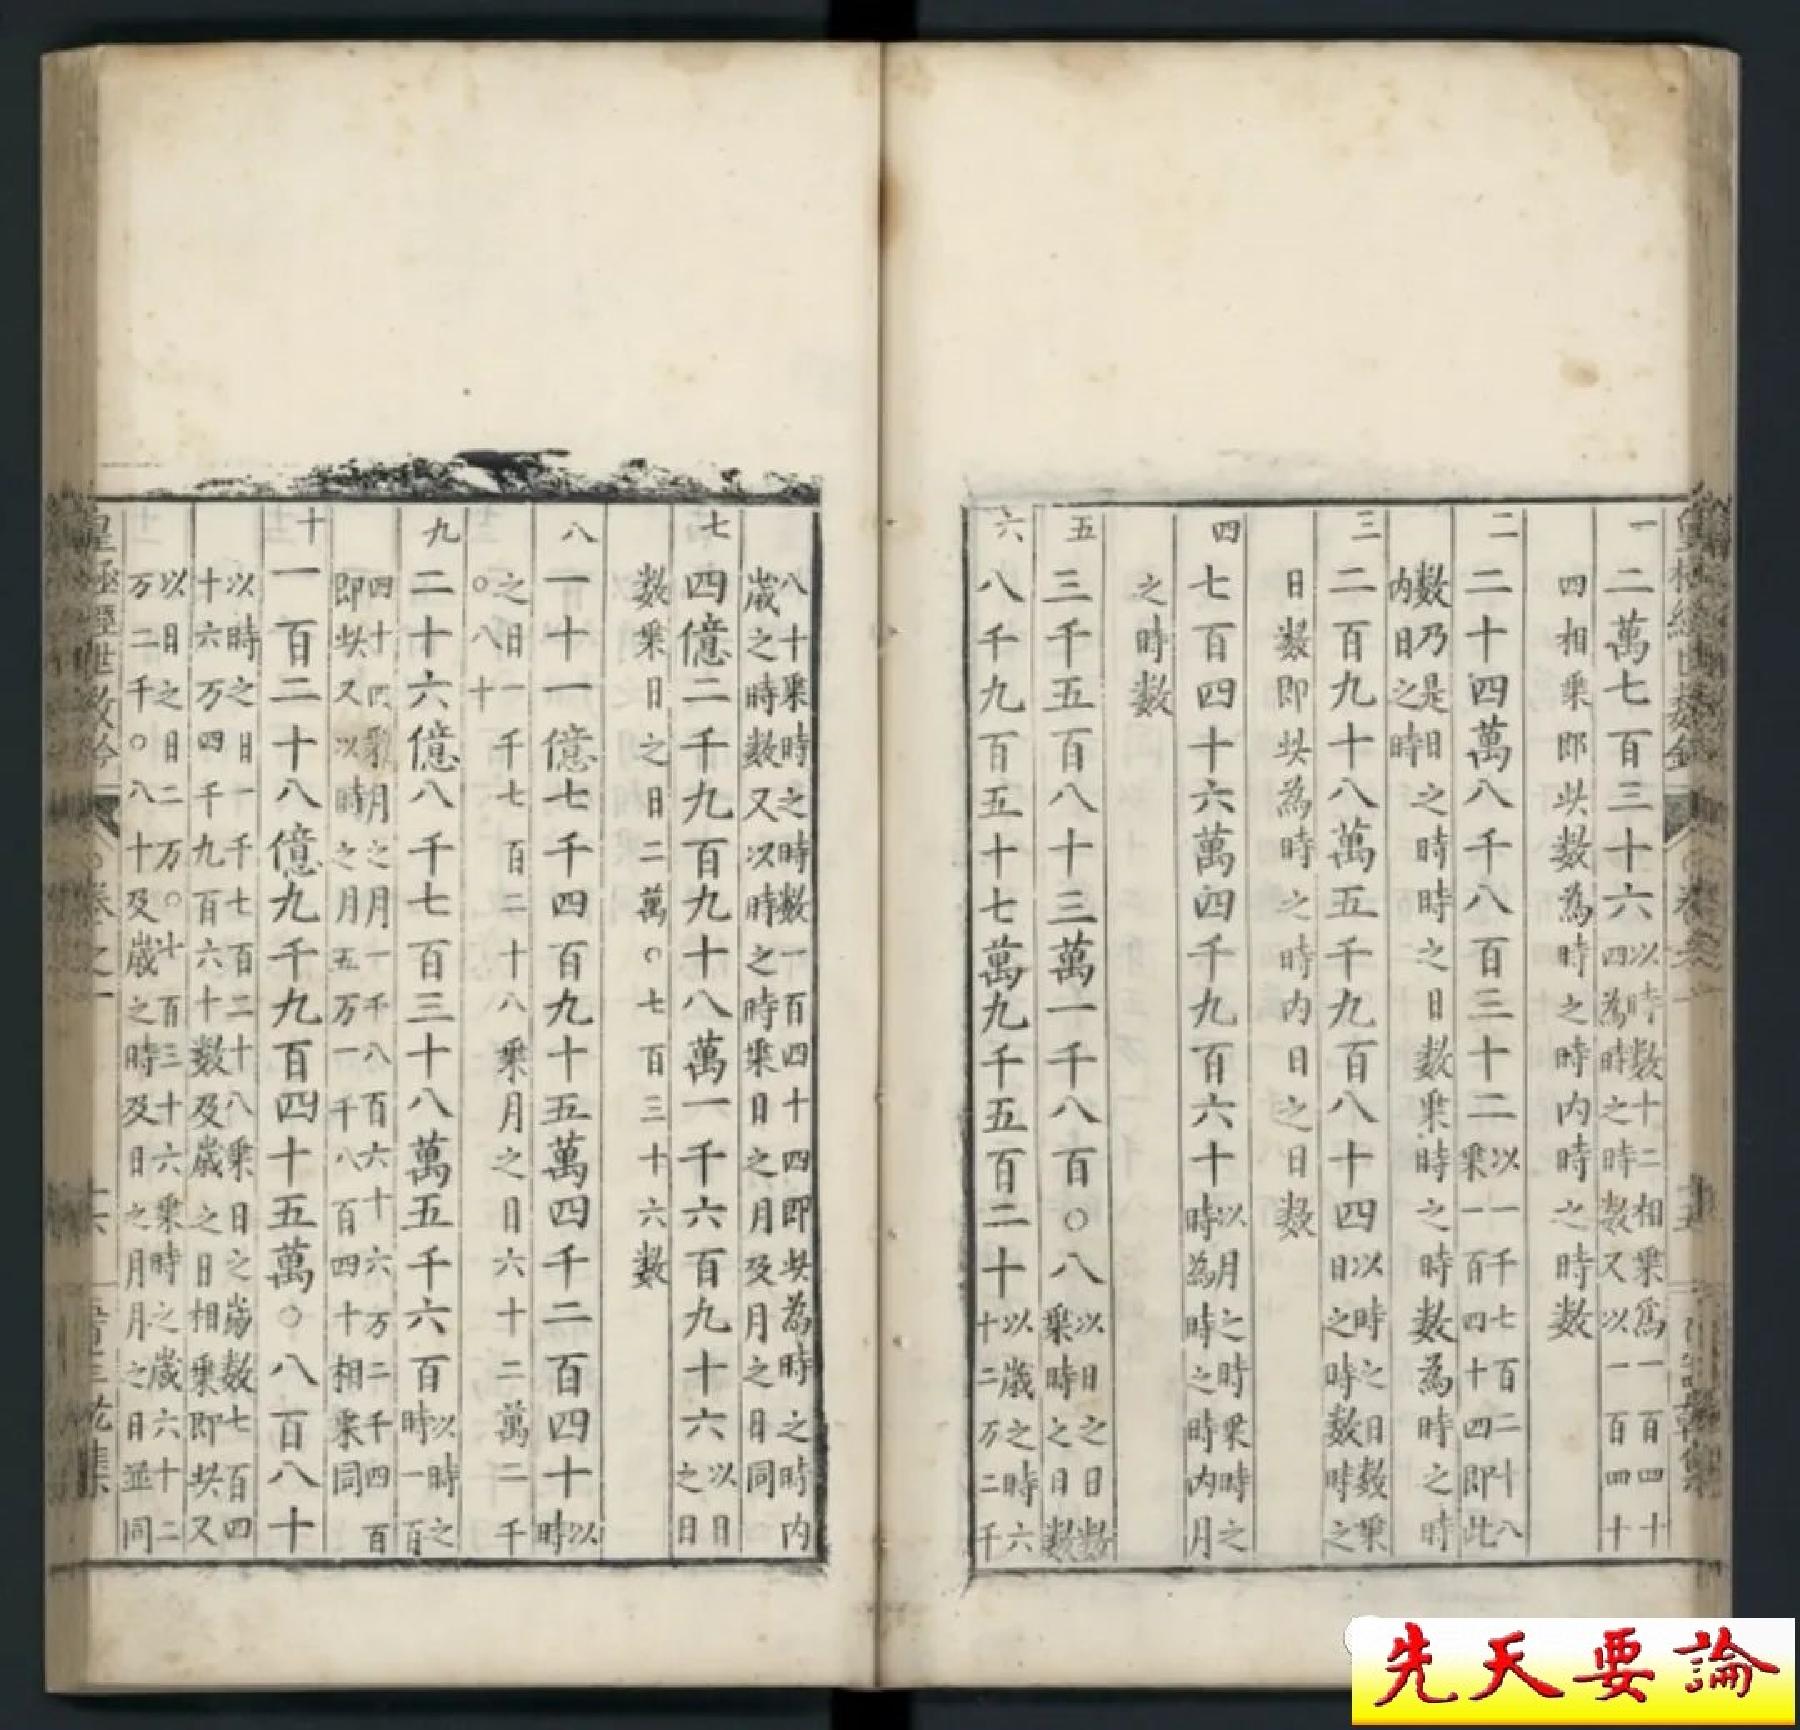 皇極經世數鈐 卷之一 十五
一 二萬七百三十六以時數十二相乘爲一百四十
四爲時之時數又以一百四十
四相乘即此數爲時之時內時之時數
二 二十四萬八千八百三十二以一千七百二十八
乘一百四十四即此
數乃是日之時時之日數乘時之時數爲時之時
內日之時
三 二百九十八萬五千九百八十四以時之日數乘
日之時數時之
日數即此為時之時內日之日數
四 七百四十六萬四千九百六十以月之時乘時之
時為時之時內月
之時數
五 三千五百八十三萬一千八百〇八以日之日數
乘時之日數
六 八千九百五十七萬九千五百二十以歲之時六
十二万二千
八十乘時之時數一百四十四即此為時之時內
歲之時數又以時之時乘日之月及月之日同
七 四億二千九百九十八萬一千六百九十六以日
之日
數乘日之日二萬〇七百三十六數
八 一十一億七千四百九十五萬四千二百四十以
時
之日一千七百二十八乘月之日六十二萬二千
〇八十
九 二十六億八千七百三十八萬五千六百以時之
時一百
四十四乘月之月一千八百六十六万二千四百
即此又以時之月五万一千八百四十相乘同
十 一百二十八億九千九百四十五萬〇八百八十
以時之日一千七百二十八乘日之歲數七百四
十六万四千九百六十數及歲之日相乘即此又
以日之日二万〇七百三十六乘時之歲六十二
万二千〇八十及歲之時及日之月月之日並同
皇極經世數鈐 卷之一 十六
先天要論